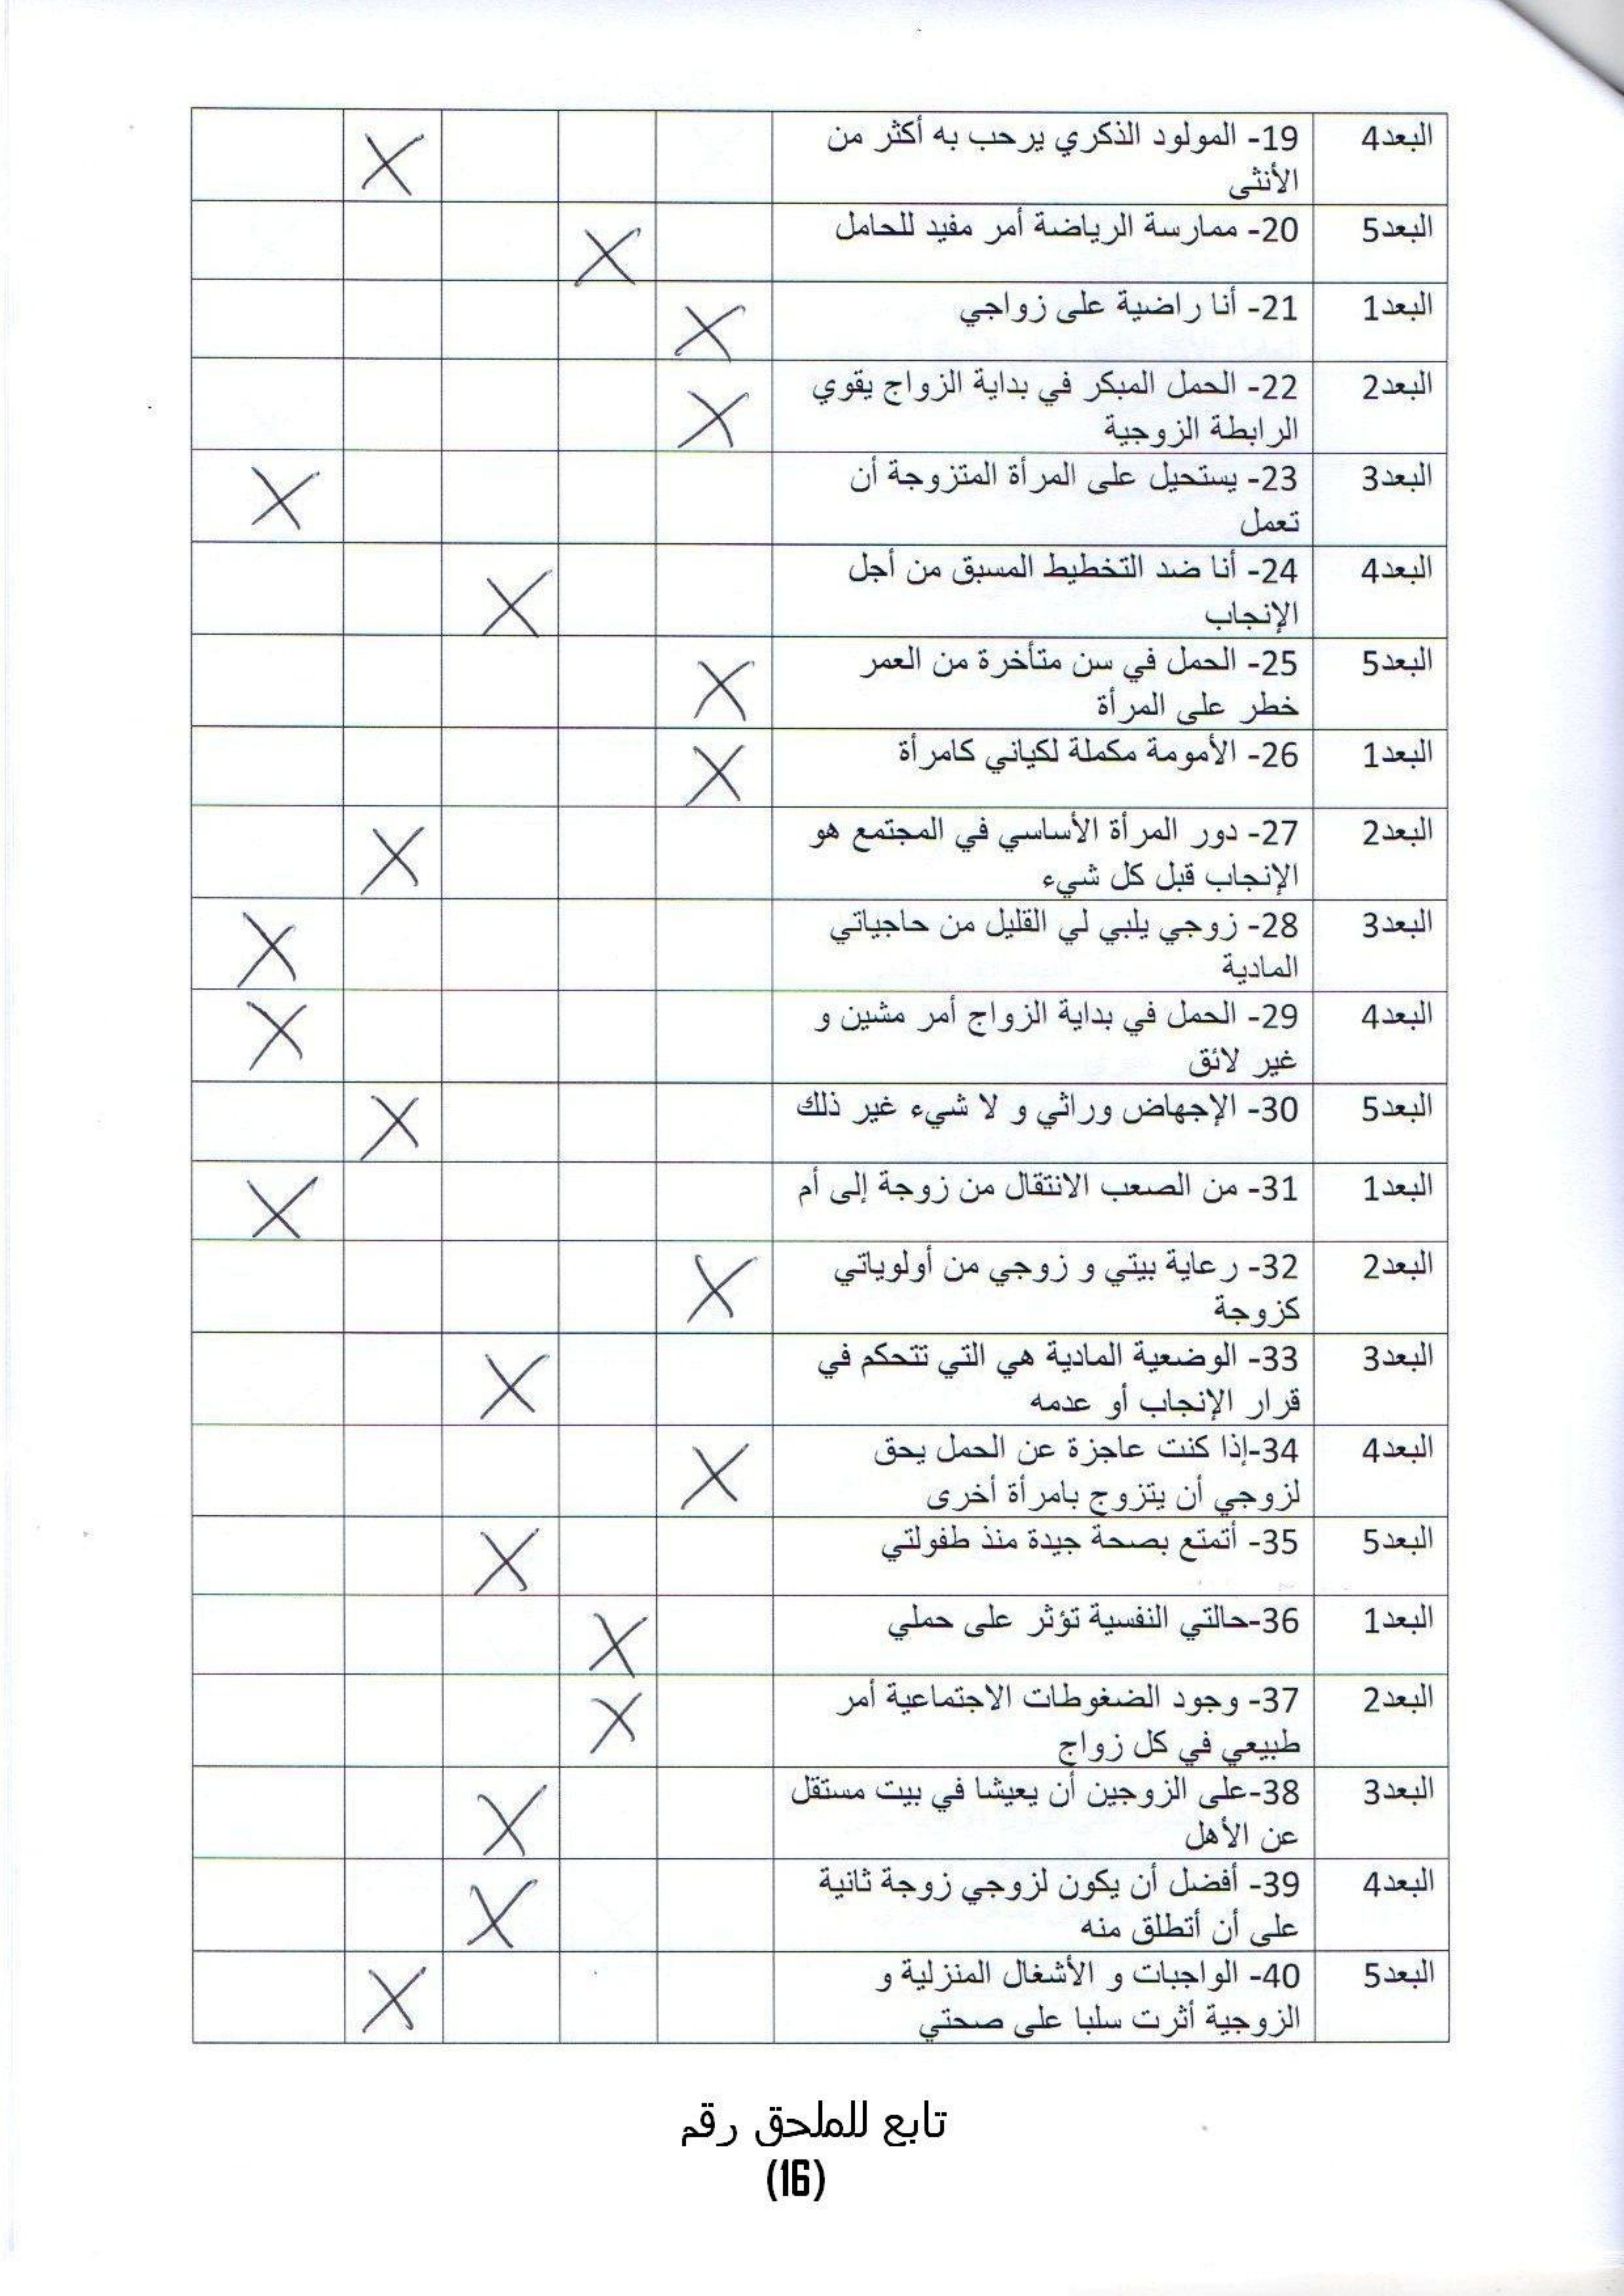 البعد4 19- المولود الذكري يرحب به أكثر من
الأنثى X
البعد5 20- ممارسة الرياضة أمر مفيد للحامل X
البعد1 21- أنا راضية على زواجي X
البعد2 22- الحمل المبكر في بداية الزواج يقوي
الرابطة الزوجية X
البعد3 23- يستحيل على المرأة المتزوجة أن
تعمل X
البعد4 24- أنا ضد التخطيط المسبق من أجل
الإنجاب X
البعد5 25- الحمل في سن متأخرة من العمر
خطر على المرأة X
البعد1 26- الأمومة مكملة لكياني كامرأة X
البعد2 27- دور المرأة الأساسي في المجتمع هو
الإنجاب قبل كل شيء X
البعد3 28- زوجي يلبي لي القليل من حاجياتي
المادية X
البعد4 29- الحمل في بداية الزواج أمر مشين و
غير لائق X
البعد5 30- الإجهاض وراثي و لا شيء غير ذلك X
البعد1 31- من الصعب الانتقال من زوجة إلى أم X
البعد2 32- رعاية بيتي و زوجي من أولوياتي
كزوجة X
البعد3 33- الوضعية المادية هي التي تتحكم في
قرار الإنجاب أو عدمه X
البعد4 34-إذا كنت عاجزة عن الحمل يحق
لزوجي أن يتزوج بامرأة أخرى X
البعد5 35- أتمتع بصحة جيدة منذ طفولتي X
البعد1 36-حالتي النفسية تؤثر على حملي X
البعد2 37- وجود الضغوطات الاجتماعية أمر
طبيعي في كل زواج X
البعد3 38-على الزوجين أن يعيشا في بيت مستقل
عن الأهل X
البعد4 39- أفضل أن يكون لزوجي زوجة ثانية
على أن أتطلق منه X
البعد5 40- الواجبات و الأشغال المنزلية و
الزوجية أثرت سلبا على صحتي X
تابع للملحق رقم
(16)